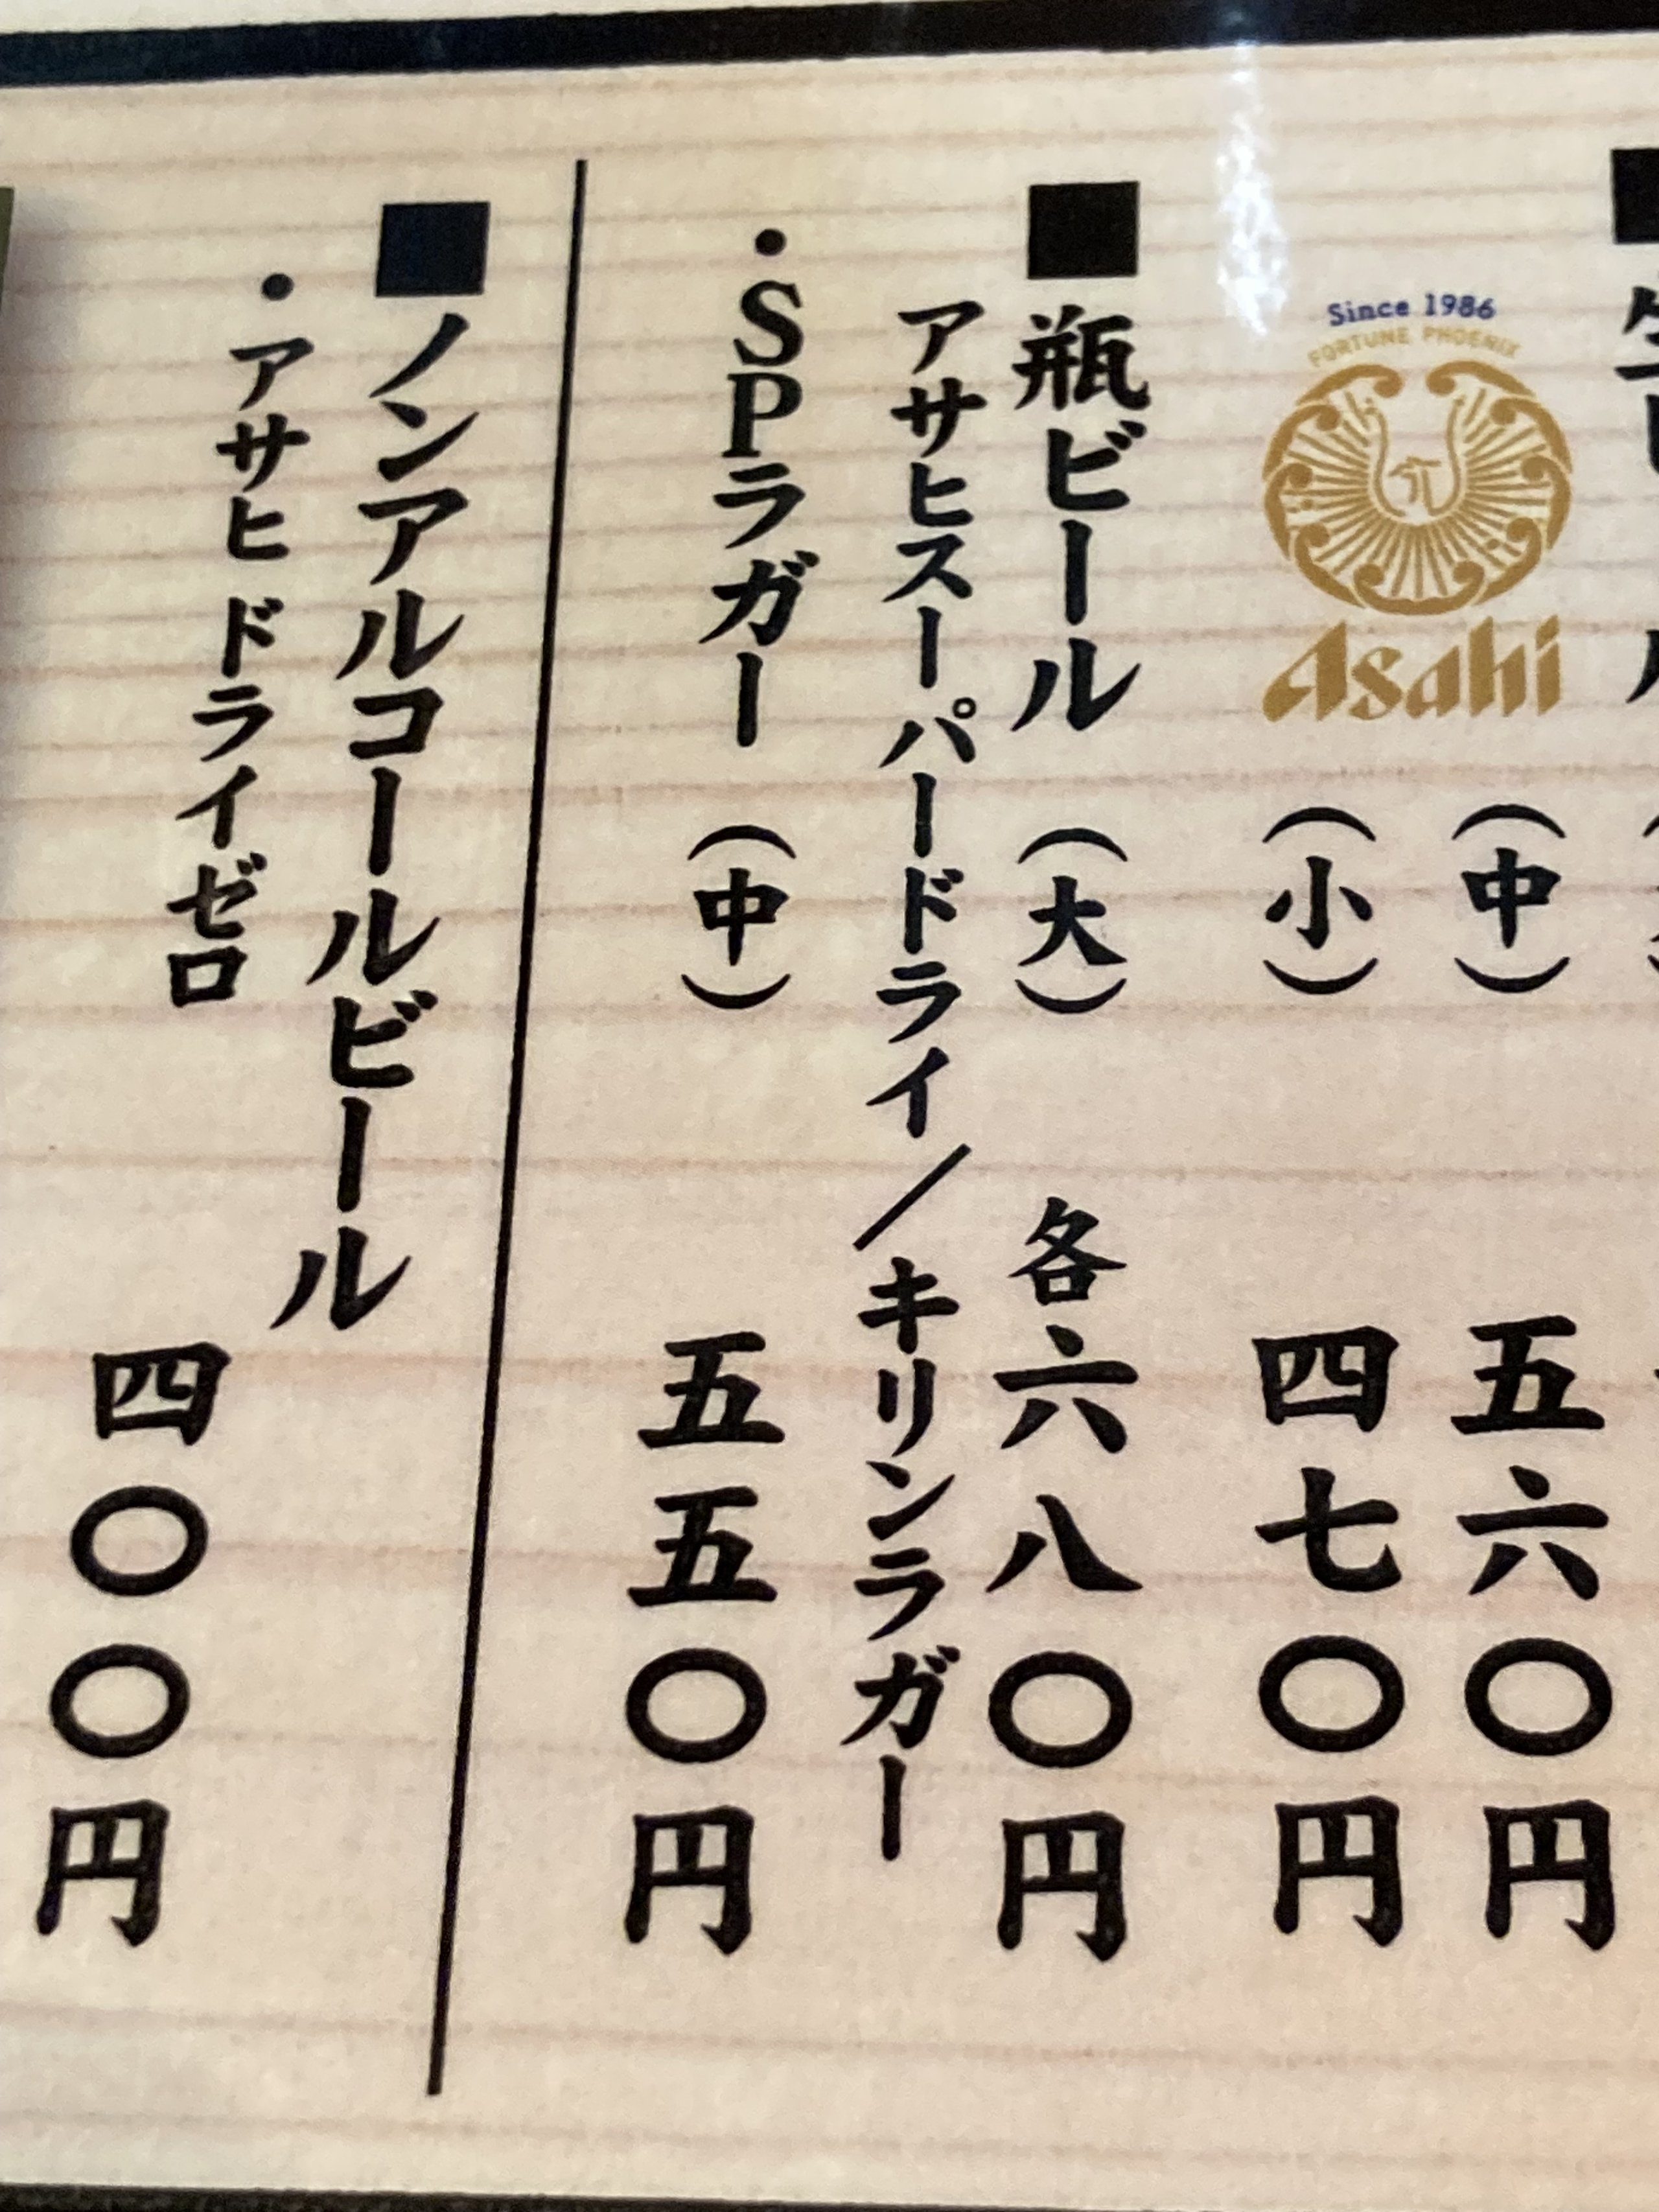 Since 1986
FORTUNE PHOENIX
Asahi
(中) 五六〇円
(小) 四七〇円
■瓶ビール (大) 各六八〇円
アサヒスーパードライ/キリンラガー
・SPラガー (中) 五五〇円
■ノンアルコールビール
・アサヒ ドライゼロ 四〇〇円